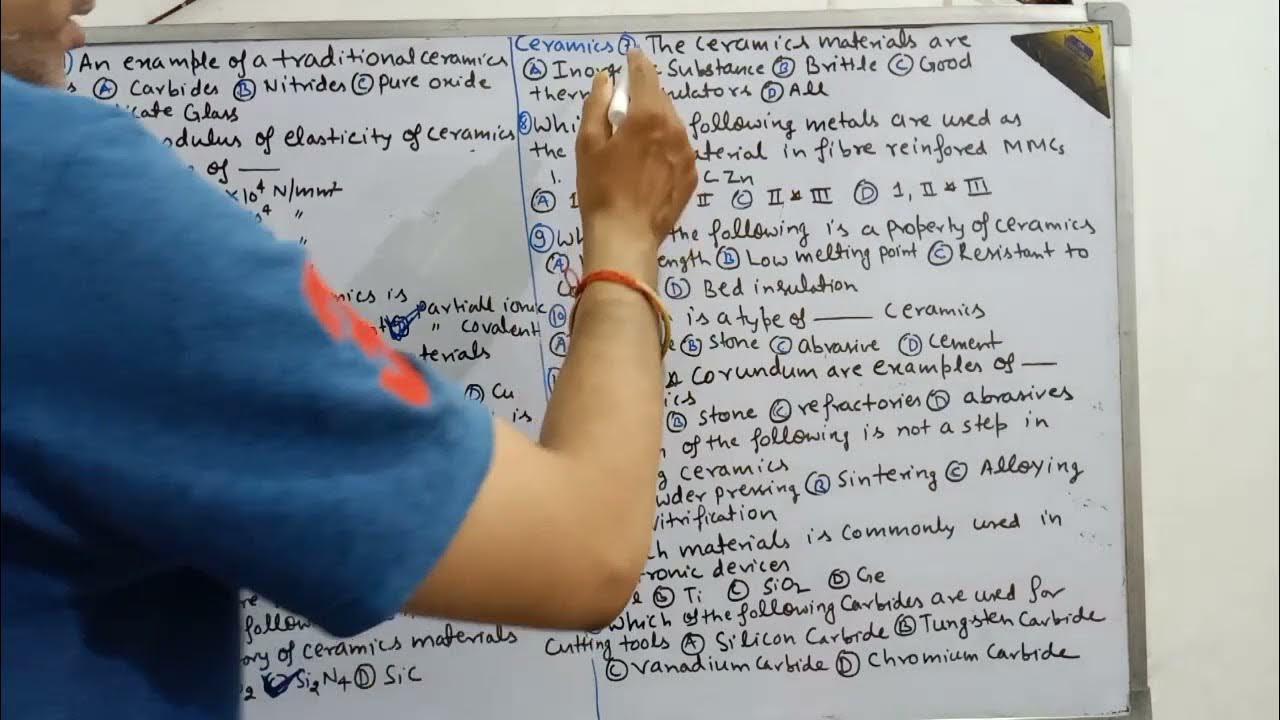 An example of a traditional ceramics
s Ⓐ Carbides Ⓑ Nitrides Ⓒ Pure oxide
icate Glass
odulus of elasticity of ceramics
of ___
×10⁴ N/mm²
⁴ "
"
mics is
partiall ionic
" covalent
terials
Ⓓ Cu
is
follow
ory of ceramics materials
2 Si₂N₄ Ⓓ SiC
Ceramics ⑦ The ceramics materials are
Ⓐ Ino Substance Ⓑ Brittle Ⓒ Good
ther ulators Ⓓ All
⑧ Whi following metals are used as
the aterial in fibre reinfored MMCs
1. Zn
Ⓐ 1 II Ⓒ II & III Ⓓ 1, II & III
⑨ Wh the following is a property of ceramics
Ⓐ ength Ⓑ Low melting point Ⓒ Resistant to
Co Ⓓ Bed insulation
⑩ is a type of ___ ceramics
Ⓐ e Ⓑ Stone Ⓒ abrasive Ⓓ Cement
& Corundum are examples of —
ics
Ⓑ Stone Ⓒ refractories Ⓓ abrasives
of the following is not a step in
g ceramics
wder pressing Ⓑ Sintering Ⓒ Alloying
vitrification
ch materials is commonly used in
tronic devices
e Ⓑ Ti Ⓒ SiO₂ Ⓓ Ge
which of the following Carbides are used for
Cutting tools Ⓐ Silicon Carbide Ⓑ Tungsten Carbide
Ⓒ Vanadium Carbide Ⓓ Chromium Carbide